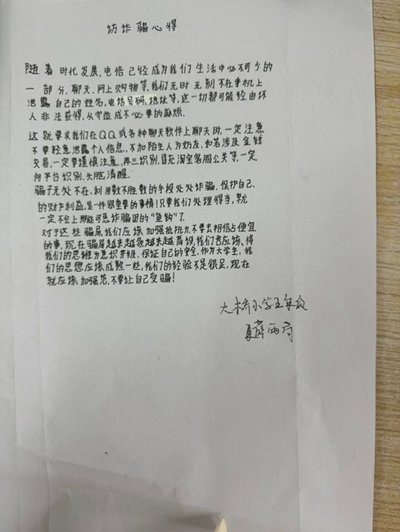 防诈骗心得
随着时代发展,电信已经成为我们生活中必不可少的
一部分,聊天、网上购物等,我们无时无刻不在手机上
泄露自己的姓名,电话号码,地址等,这一切都可能经由坏
人非法获得,从而造成不必要的麻烦。
这就要求我们在QQ或各种聊天软件上聊天时,一定注意
不要轻意泄露个人信息,不加陌生人为好友,如若涉及金钱
交易,一定要谨慎注意,再三识别,冒充淘宝客服公关等,一定
向平台识别,头脑清醒。
骗子无处不在,利用数不胜数的手段处处诈骗,保护自己
的财产利益,是一件很重要的事情!只要我们处理得当,就
一定不会上期能可恶诈骗团的“鱼钩”了。
对于这些骗局我们应该加强抵抗力,不要去相信占便宜
的事,现在骗局越来越多越来越高级,我们也应该,将
我们的思维为意识升级,保证自己的安全,作为大学生,我
们的思想应该成熟一些,我们的经验不是很足,现在
就应该加强范,不要让自己受骗!
大桥小学五年级